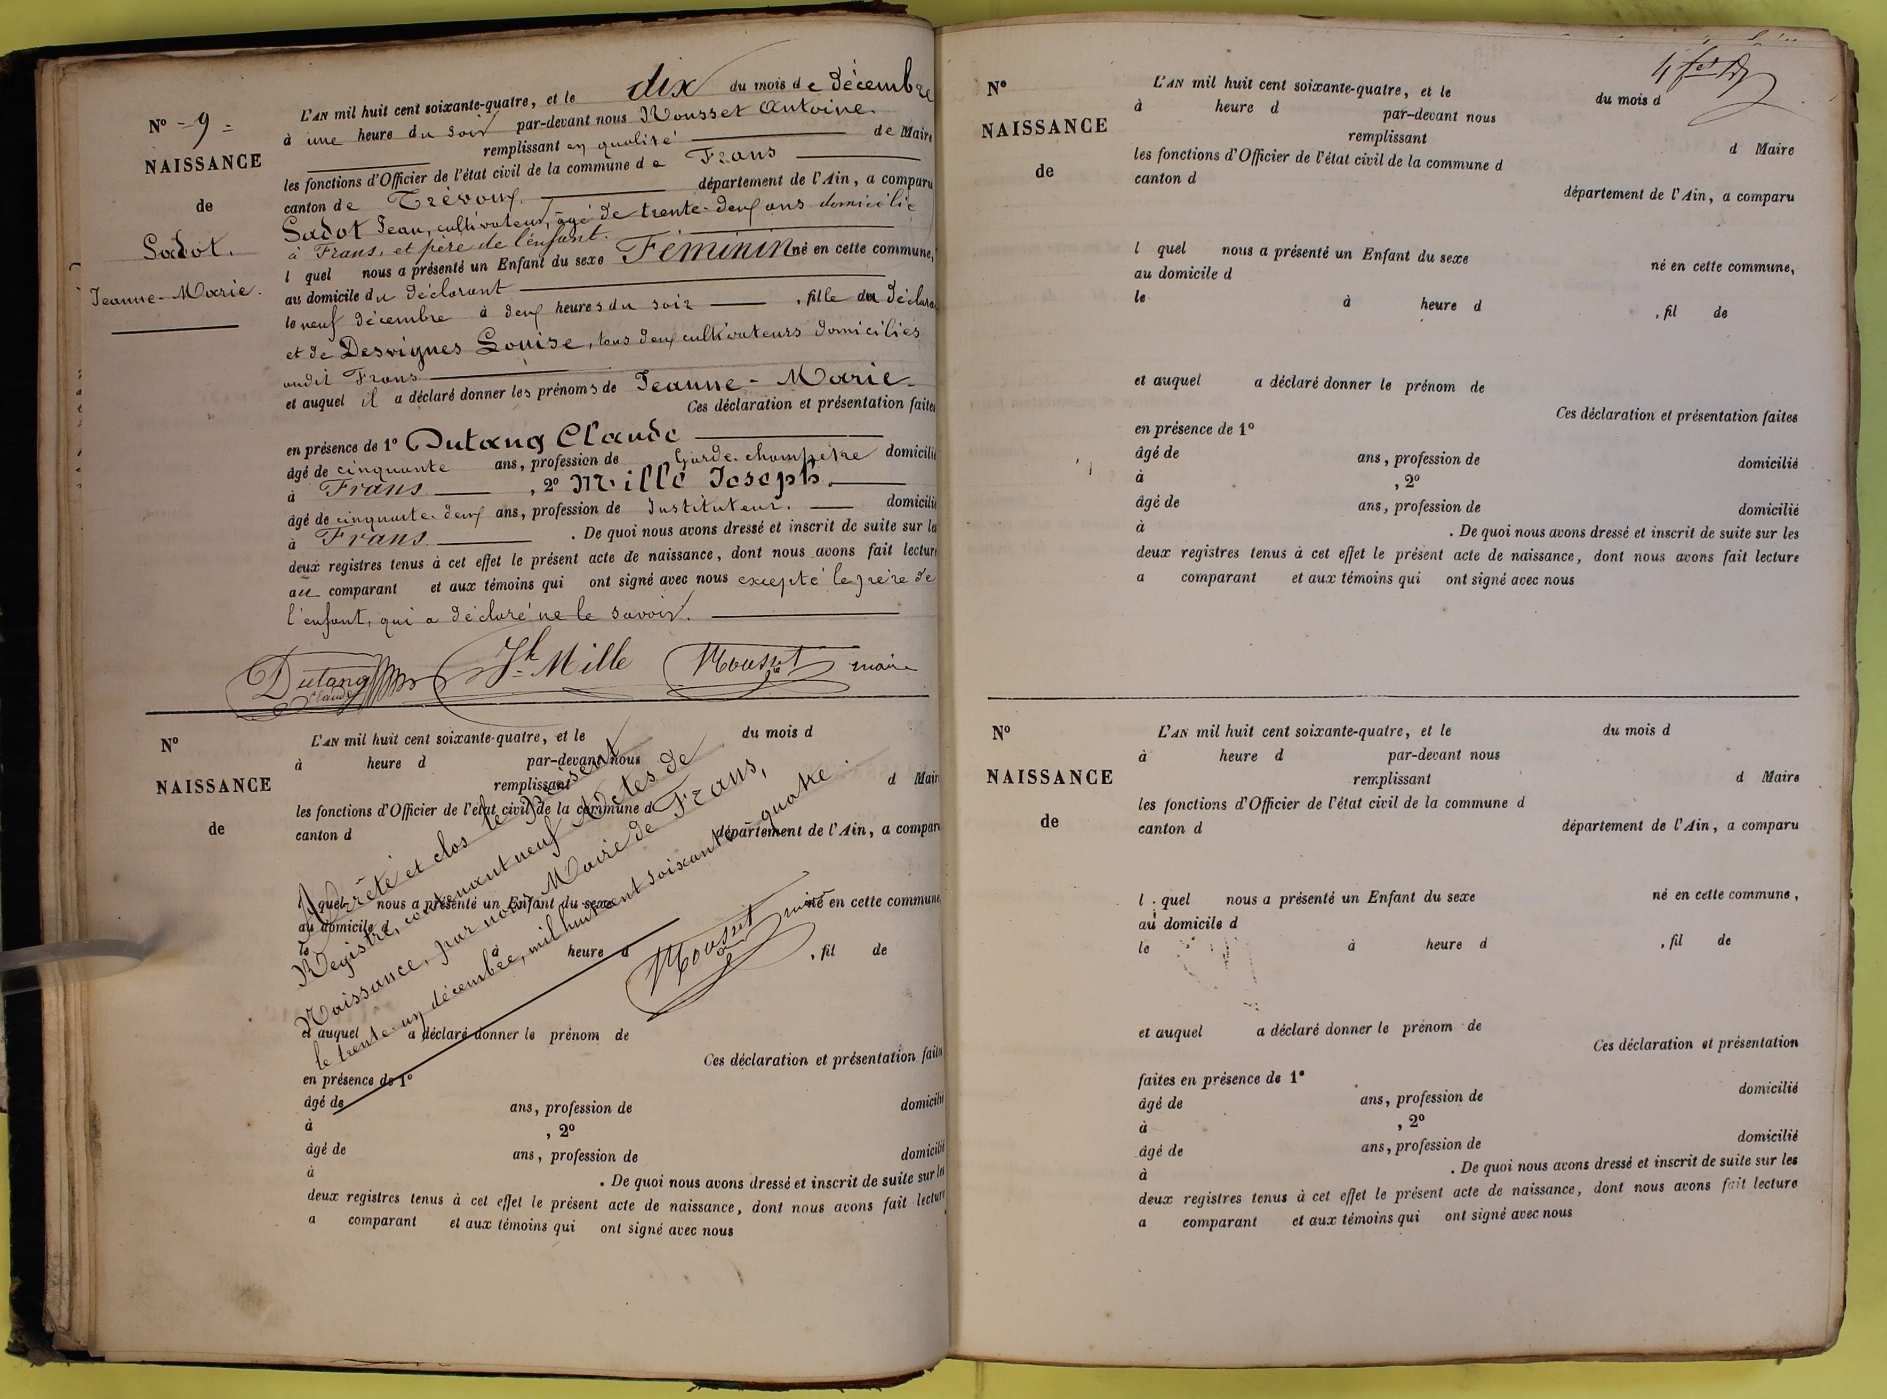 N° 9
NAISSANCE
de
Sadot.
Jeanne-Marie.
L'AN mil huit cent soixante-quatre, et le dix du mois de décembre
à une heure du soir par-devant nous Mousset Antoine.
remplissant en qualité de Maire
les fonctions d'Officier de l'état civil de la commune de Frans
canton de Trévoux département de l'Ain, a comparu
Sadot Jean, cultivateur, âgé de trente-deux ans domicilié
à Frans, et père de l'enfant.
l quel nous a présenté un Enfant du sexe Féminin né en cette commune,
au domicile du déclarant
le neuf décembre à deux heures du soir , fille du déclara
et de Desvignes Louise, tous deux cultivateurs domiciliés
audit Frans
et auquel il a déclaré donner les prénoms de Jeanne-Marie.
Ces déclaration et présentation faites
en présence de 1° Dutang Claude
âgé de cinquante ans, profession de Garde-champêtre domicilié
à Frans , 2° Mille Joseph.
âgé de cinquante-deux ans, profession de Instituteur. domicilié
à Frans . De quoi nous avons dressé et inscrit de suite sur les
deux registres tenus à cet effet le présent acte de naissance, dont nous avons fait lecture
au comparant et aux témoins qui ont signé avec nous excepté le père de
l'enfant, qui a déclaré ne le savoir.
Dutang Claude Jh Mille Mousset maire
N°
NAISSANCE
de
L'AN mil huit cent soixante-quatre, et le du mois d
à heure d par-devant nous
remplissant d Maire
les fonctions d'Officier de l'état civil de la commune d
canton d département de l'Ain, a comparu
l quel nous a présenté un Enfant du sexe né en cette commune,
au domicile d
le à heure d , fil de
et auquel a déclaré donner le prénom de
Ces déclaration et présentation faites
en présence de 1°
âgé de ans, profession de domicilié
à , 2°
âgé de ans, profession de domicilié
à . De quoi nous avons dressé et inscrit de suite sur les
deux registres tenus à cet effet le présent acte de naissance, dont nous avons fait lecture
a comparant et aux témoins qui ont signé avec nous
Arrêté et clos le présent
Registre, contenant neuf Actes de
Naissance, par nous Maire de Frans,
le trente-un décembre, mil huit cent soixante-quatre.
Mousset maire
N°
NAISSANCE
de
L'AN mil huit cent soixante-quatre, et le du mois d
à heure d par-devant nous
remplissant d Maire
les fonctions d'Officier de l'état civil de la commune d
canton d
département de l'Ain, a comparu
l quel nous a présenté un Enfant du sexe né en cette commune,
au domicile d
le à heure d , fil de
et auquel a déclaré donner le prénom de
Ces déclaration et présentation faites
en présence de 1°
âgé de ans, profession de domicilié
à , 2°
âgé de ans, profession de domicilié
à . De quoi nous avons dressé et inscrit de suite sur les
deux registres tenus à cet effet le présent acte de naissance, dont nous avons fait lecture
a comparant et aux témoins qui ont signé avec nous
N°
NAISSANCE
de
L'AN mil huit cent soixante-quatre, et le du mois d
à heure d par-devant nous
remplissant d Maire
les fonctions d'Officier de l'état civil de la commune d
canton d département de l'Ain, a comparu
l quel nous a présenté un Enfant du sexe né en cette commune,
au domicile d
le à heure d , fil de
et auquel a déclaré donner le prénom de
Ces déclaration et présentation
faites en présence de 1°
âgé de ans, profession de domicilié
à , 2°
âgé de ans, profession de domicilié
à . De quoi nous avons dressé et inscrit de suite sur les
deux registres tenus à cet effet le présent acte de naissance, dont nous avons fait lecture
a comparant et aux témoins qui ont signé avec nous